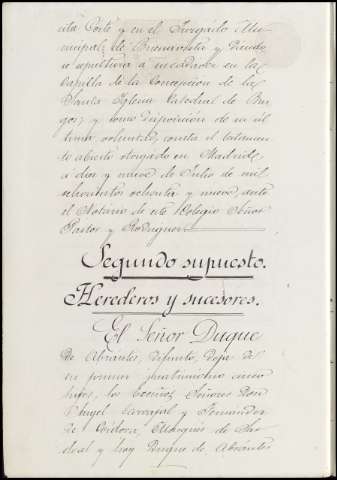 esta Corte y en el Juzgado Mu-
nicipal de Buenavista y dando
se sepultura á su cadáver en la
Capilla de la Concepcion de la
Santa Iglesia Catedral de Bur-
gos; y como disposicion de su úl
tima voluntad, consta el testamen-
to abierto otorgado en Madrid,
a diez y nueve de Julio de mil
ochocientos ochenta y nueve, ante
el Notario de este Colegio Señor
Pastor y Rodriguez
Segundo supuesto.
Herederos y sucesores.
El Señor Duque
de Abrantes, difunto, deja de
su primer matrimonio cinco
hijos, los Excmos. Señores Don
Angel Carvajal y Fernandez
de Cordova, Marqués de Sar
doal y hoy Duque de Abrantes